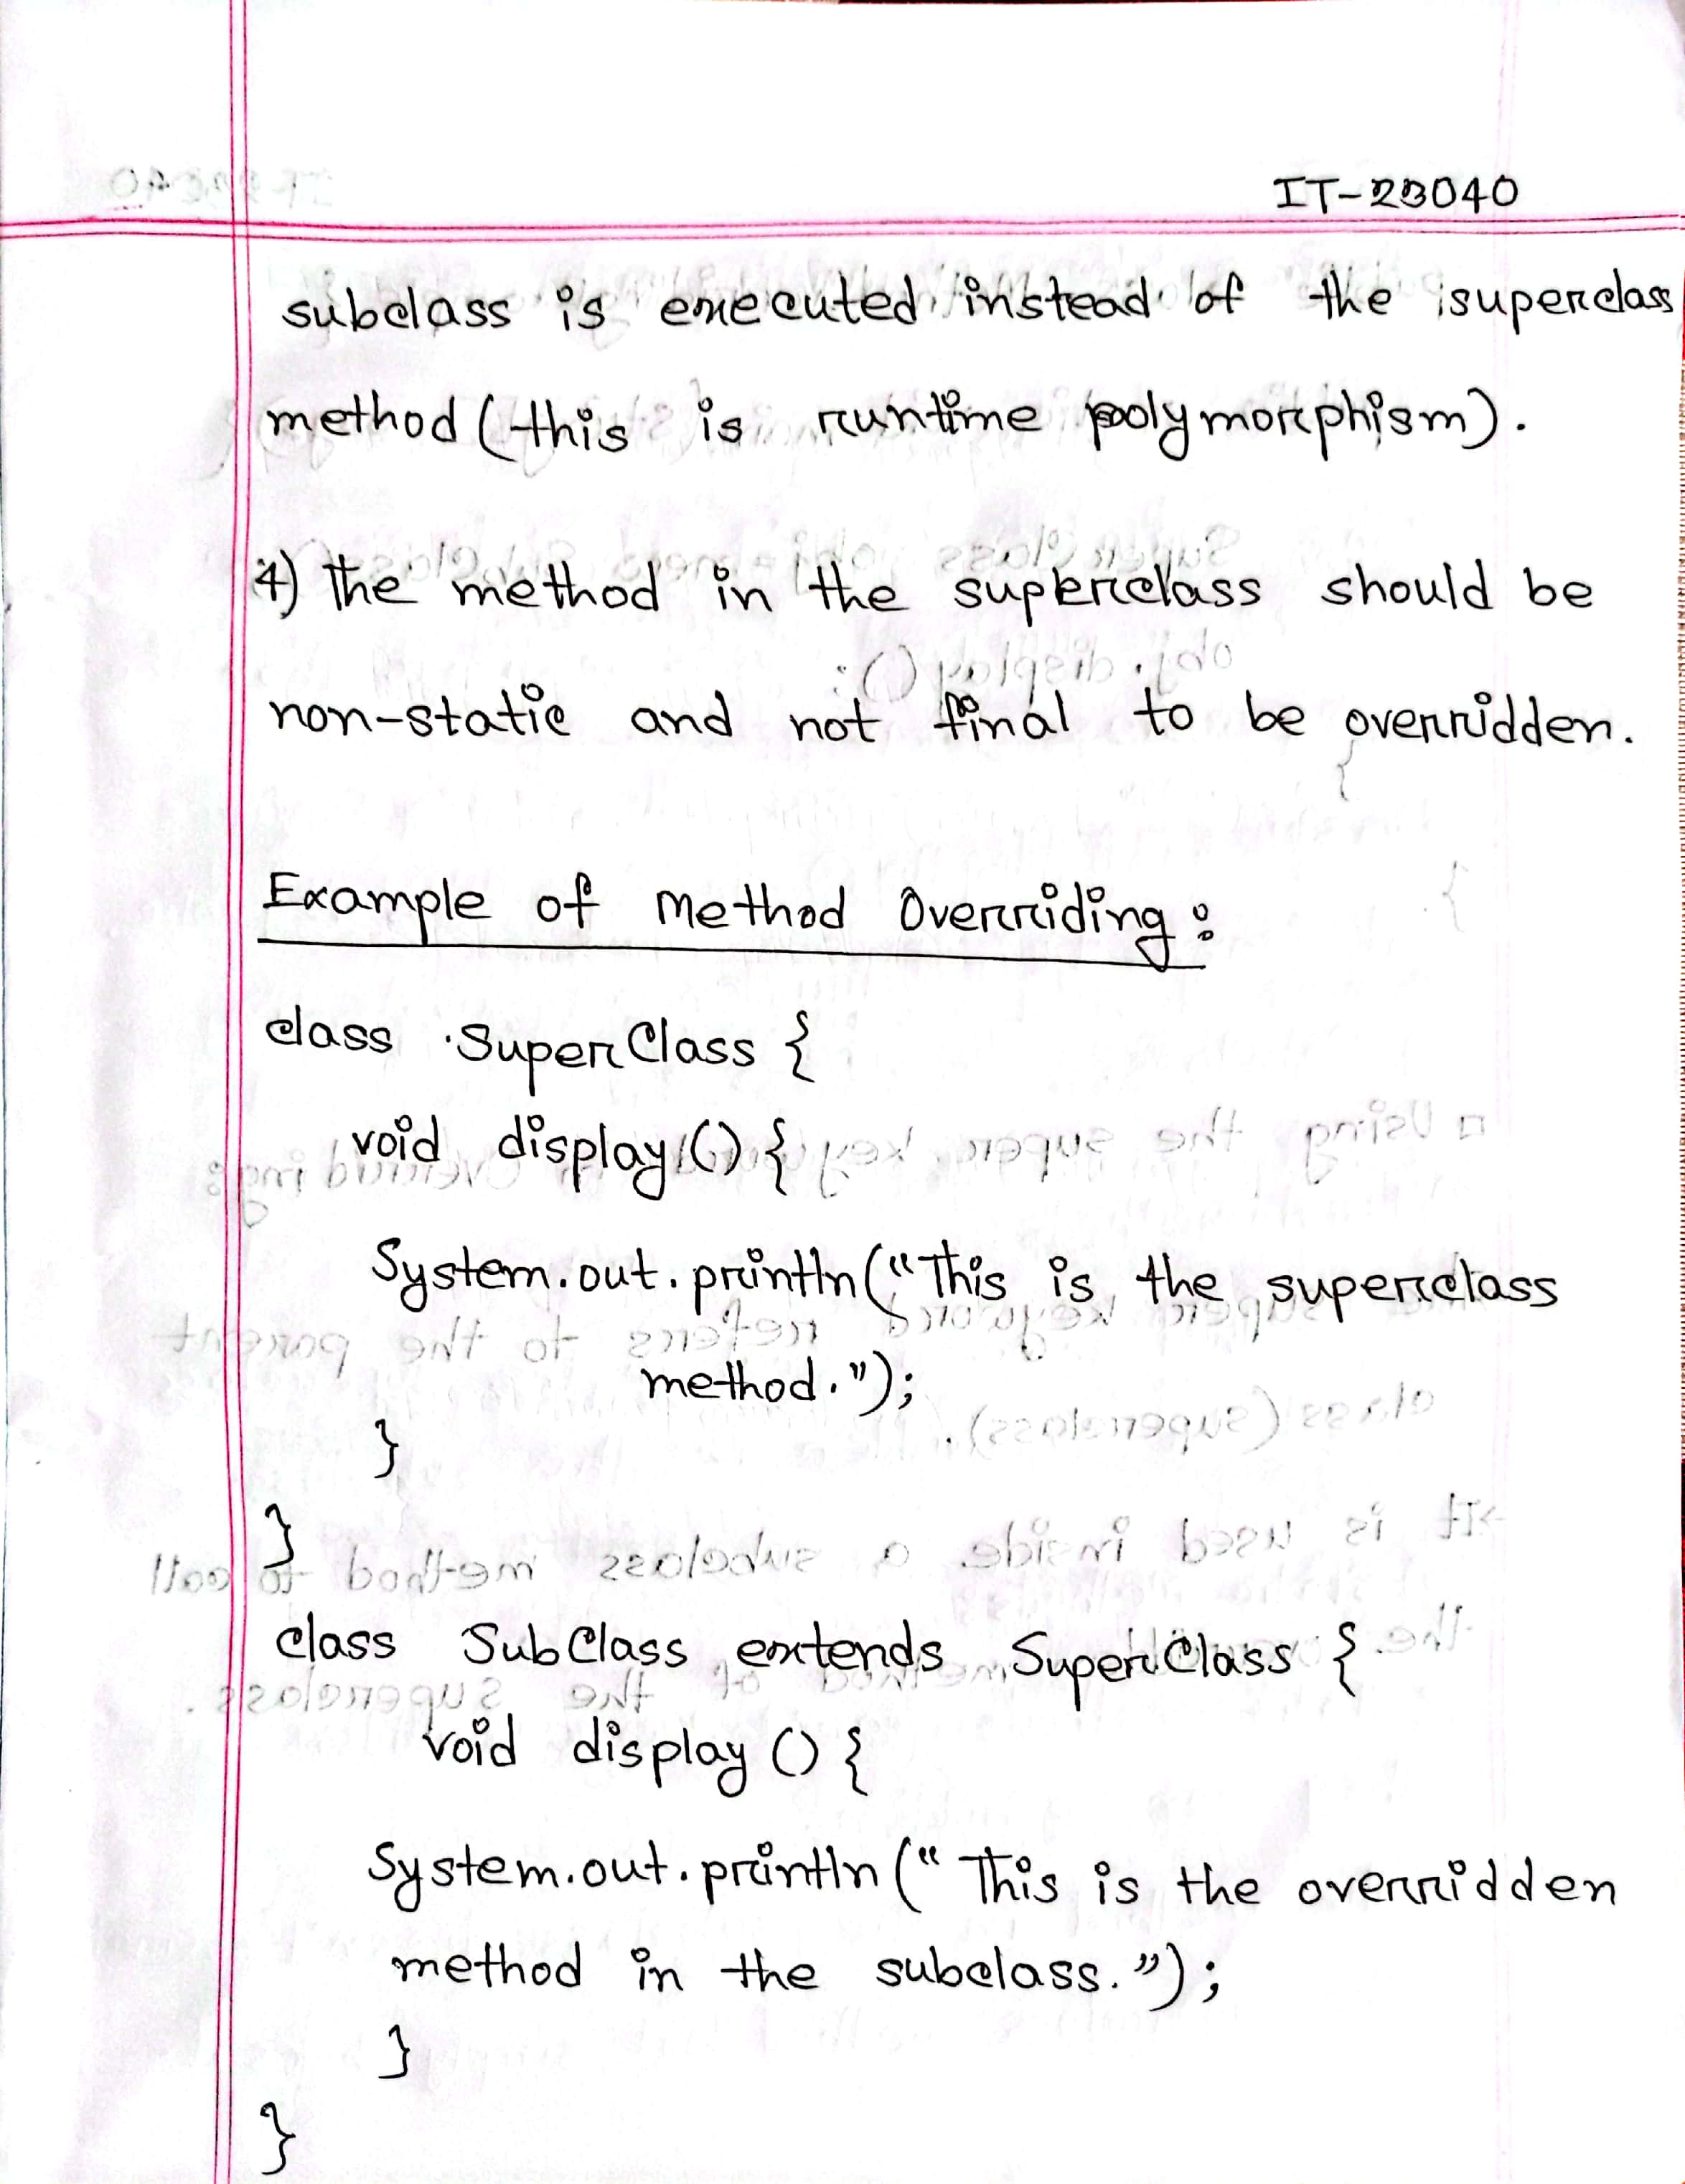 IT-23040
subclass is executed instead of the superclass
method (this is runtime polymorphism).
4) the method in the superclass should be
non-static and not final to be overridden.
Example of Method Overriding:
class SuperClass {
void display() {
System.out.println("This is the superclass
method.");
}
}
class SubClass extends SuperClass {
void display () {
System.out.println("This is the overridden
method in the subclass.");
}
}